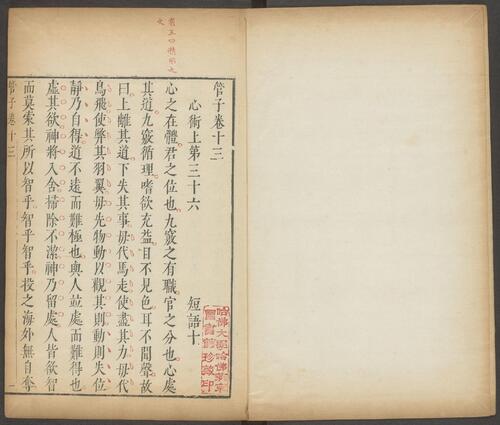 管子卷十三
心術上第三十六 短語十
心之在體君之位也九竅之有職官之分也心處
其道九竅循理嗜欲充益目不見色耳不聞聲故
曰上離其道下失其事毋代馬走使盡其力毋代
鳥飛使弊其羽翼毋先物動以觀其則動則失位
靜乃自得道不遠而難極也與人竝處而難得也
虛其欲神將入舍掃除不潔神乃留處人皆欲智
而莫索其所以智乎智乎智乎投之海外無自奪
管子卷十三 一
哈佛大學哈佛燕京
圖書館珍藏印